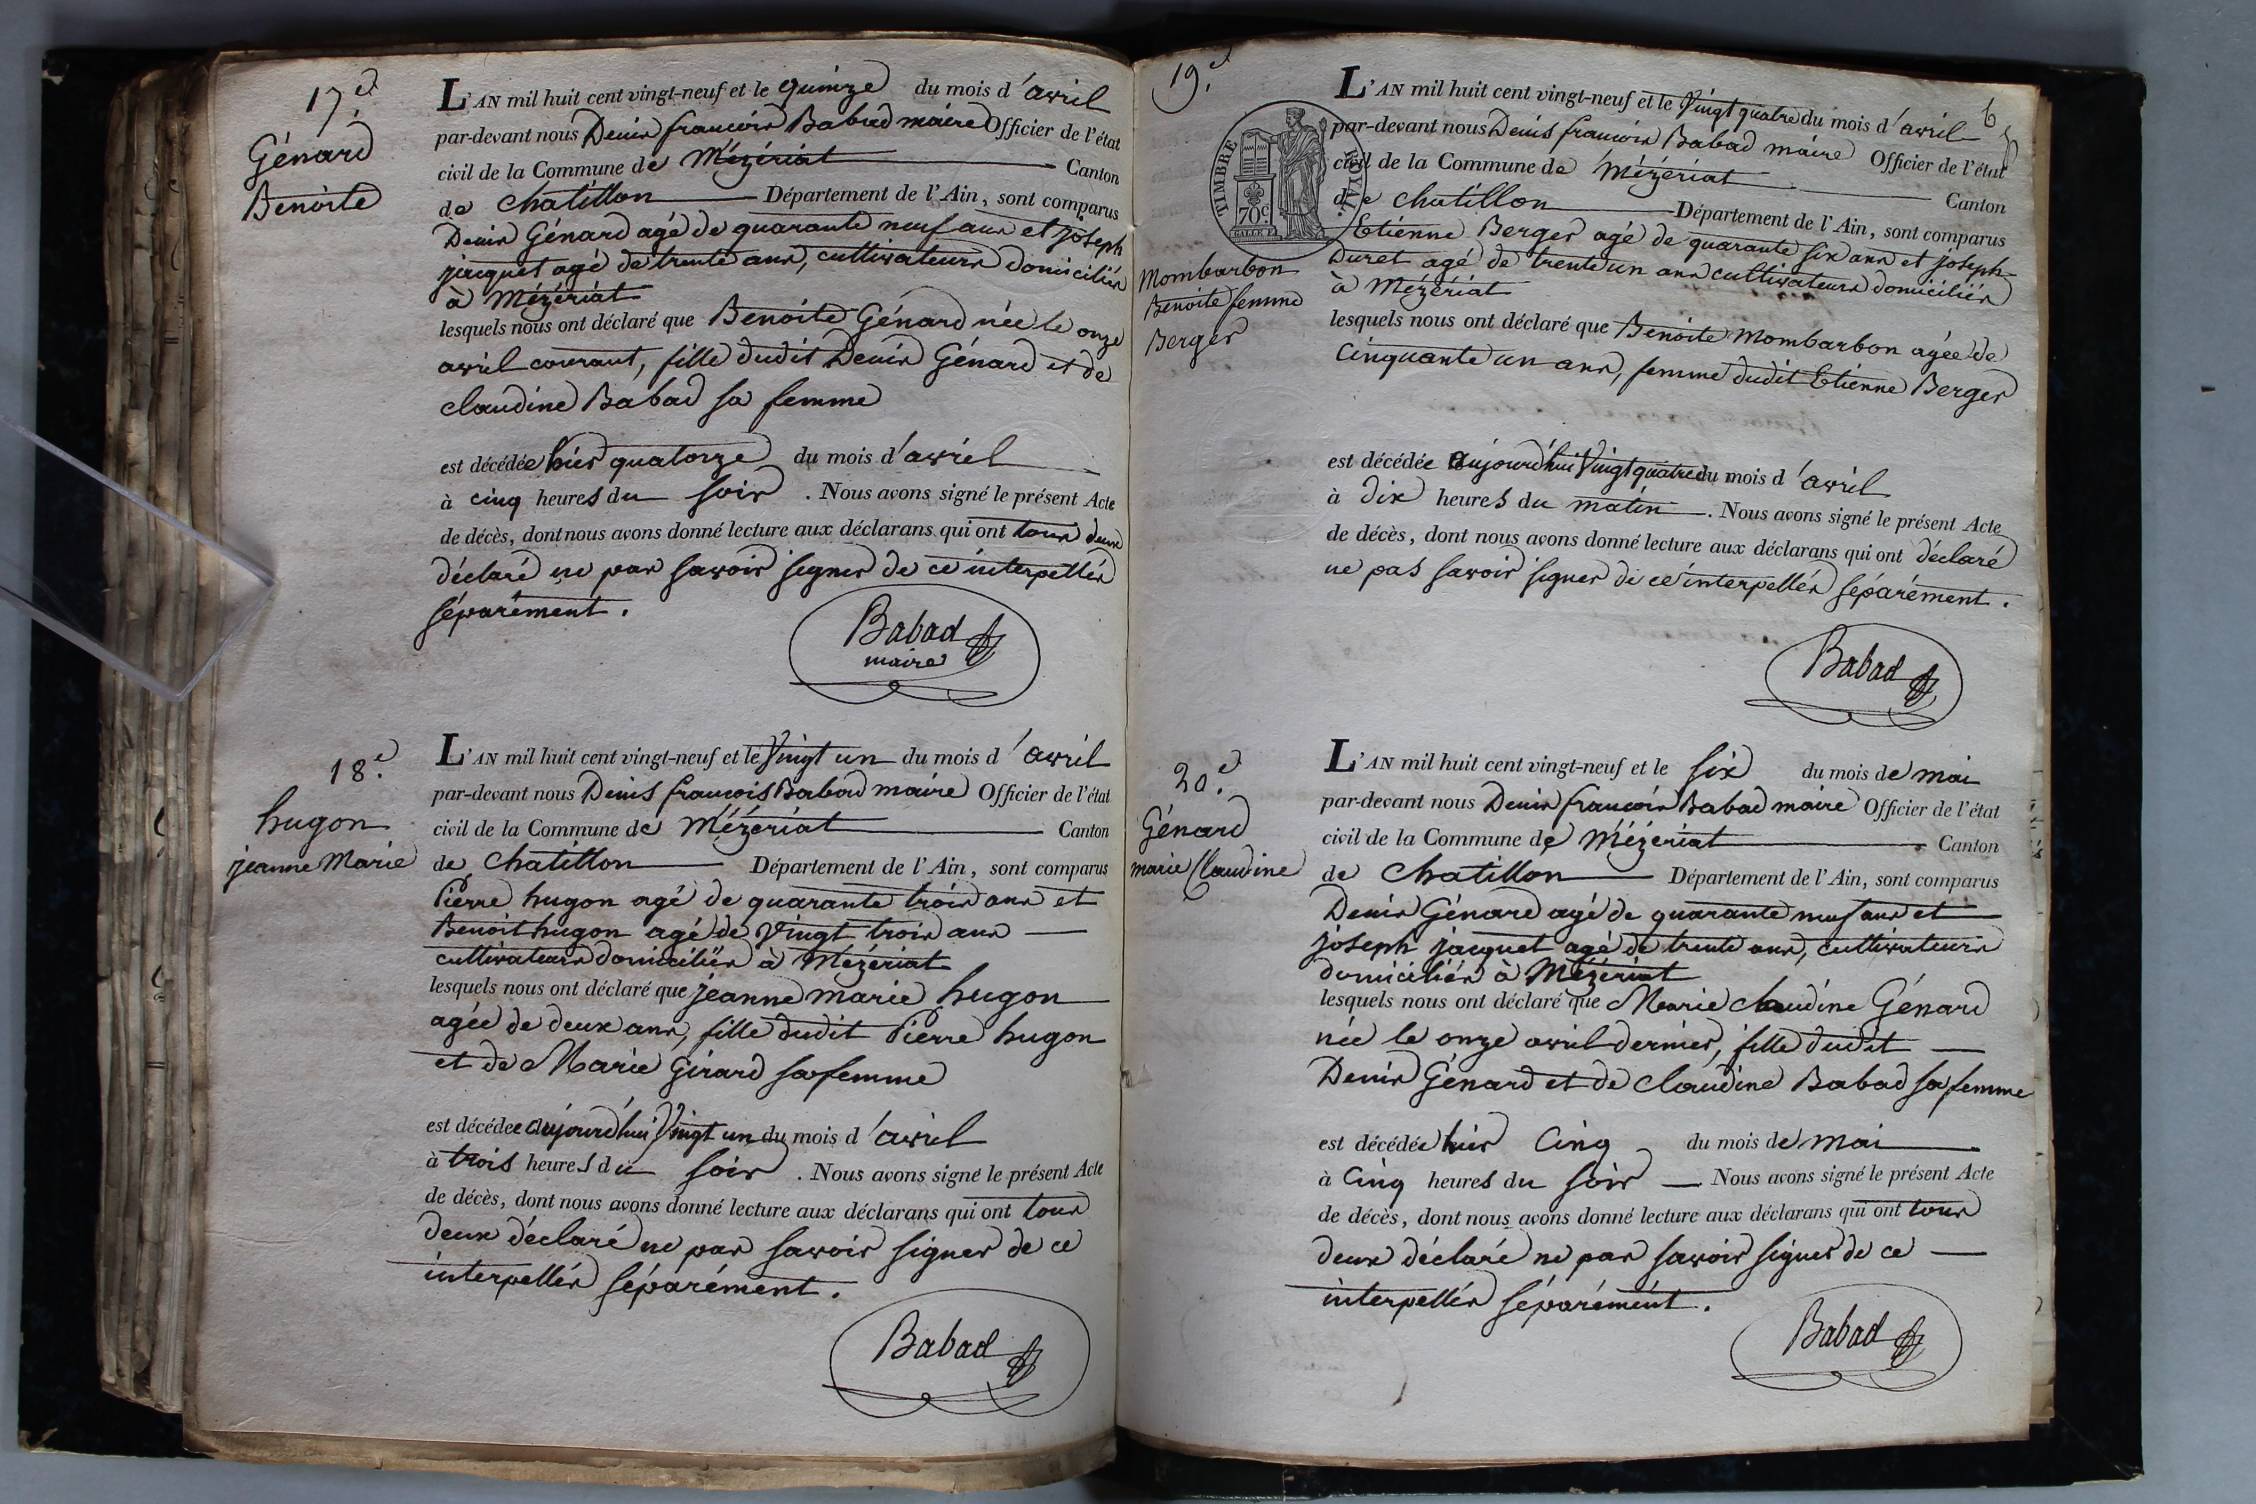 17.e
Génard
Benoite
L'AN mil huit cent vingt-neuf et le quinze du mois d'avril
par-devant nous Denis françois Babad maire Officier de l'état
civil de la Commune de Mézériat Canton
de chatillon Département de l'Ain, sont comparus
Denis Génard agé de quarante neuf ans et joseph
jacquet agé de trente ans, cultivateurs domiciliés
à Mézériat
lesquels nous ont déclaré que Benoite Génard née le onze
avril courant, fille dudit Denis Génard et de
claudine Babad sa femme
est décédée hier quatorze du mois d'avril
à cinq heures du soir. Nous avons signé le présent Acte
de décès, dont nous avons donné lecture aux déclarans qui ont tous deux
déclaré ne pas savoir signer de ce interpellés
séparément.
Babad
maire
18.e
hugon
jeanne Marie
L'AN mil huit cent vingt-neuf et le Vingt un du mois d'avril
par-devant nous Denis françois Babad maire Officier de l'état
civil de la Commune de Mézériat Canton
de chatillon Département de l'Ain, sont comparus
Pierre hugon agé de quarante trois ans et
Benoit hugon agé de Vingt trois ans
cultivateurs domiciliés à Mézériat
lesquels nous ont déclaré que jeanne marie hugon
agée de deux ans, fille dudit Pierre hugon
et de Marie Girard sa femme
est décédée aujourd'hui Vingt un du mois d'avril
à trois heures du soir. Nous avons signé le présent Acte
de décès, dont nous avons donné lecture aux déclarans qui ont tous
deux déclaré ne pas savoir signer de ce
interpellés séparément.
Babad
19.e
6
TIMBRE ROYAL.
70c.
Mombarbon
Benoite femme
Berger
L'AN mil huit cent vingt-neuf et le Vingt quatre du mois d'avril
par-devant nous Denis françois Babad maire Officier de l'état
civil de la Commune de Mézériat Canton
de chatillon Département de l'Ain, sont comparus
Etienne Berger agé de quarante six ans et joseph
Duret agé de trente un ans cultivateurs domiciliés
à Mézériat
lesquels nous ont déclaré que Benoite Mombarbon agée de
cinquante un ans, femme dudit Etienne Berger
est décédée aujourd'hui Vingt quatre du mois d'avril
à dix heures du matin. Nous avons signé le présent Acte
de décès, dont nous avons donné lecture aux déclarans qui ont déclaré
ne pas savoir signer de ce interpellés séparément.
Babad
20.e
Génard
marie Claudine
L'AN mil huit cent vingt-neuf et le six du mois de mai
par-devant nous Denis françois Babad maire Officier de l'état
civil de la Commune de Mézériat Canton
de chatillon Département de l'Ain, sont comparus
Denis Génard agé de quarante neuf ans et
joseph jacquet agé de trente ans, cultivateurs
domiciliés à Mézériat
lesquels nous ont déclaré que Marie claudine Génard
née le onze avril dernier, fille dudit
Denis Génard et de Claudine Babad sa femme
est décédée hier Cinq du mois de mai
à Cinq heures du soir Nous avons signé le présent Acte
de décès, dont nous avons donné lecture aux déclarans qui ont tous
deux déclaré ne pas savoir signer de ce
interpellés séparément.
Babad